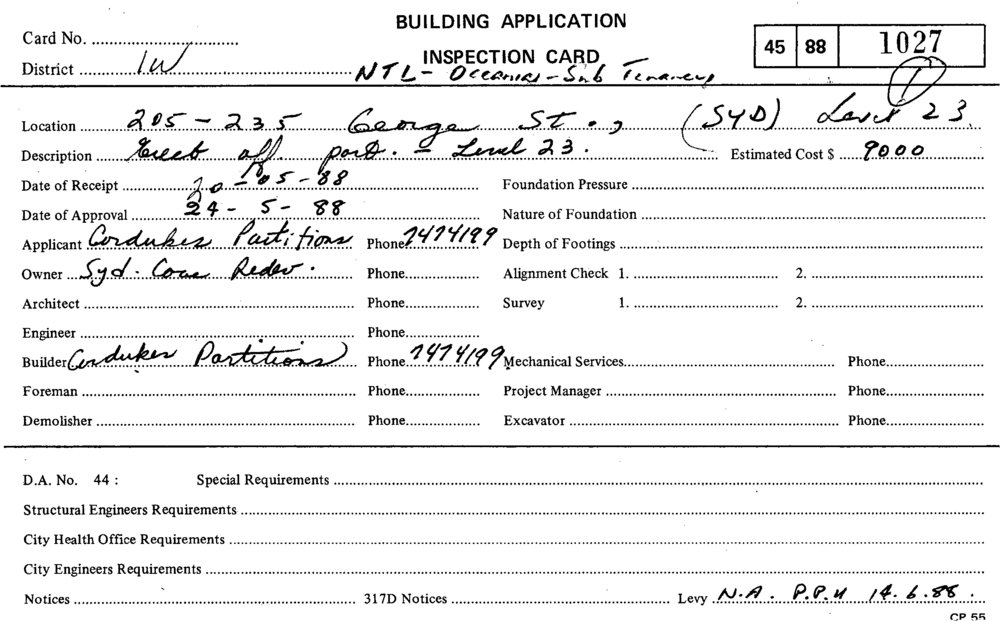 BUILDING APPLICATION
Card No.
INSPECTION CARD
45 88 1027
District 1W NTL- Oceanias - Sub Tenancy
1
Location 205 - 235 George St., (SYD) Level 23.
Description Erect off. part. - Level 23. Estimated Cost $ 9000
Date of Receipt 20-05-88 Foundation Pressure
Date of Approval 24-5-88 Nature of Foundation
Applicant Cordukes Partitions Phone 7474199 Depth of Footings
Owner Syd. Cove Redev. Phone Alignment Check 1. 2.
Architect Phone Survey 1. 2.
Engineer Phone
Builder Cordukes Partitions Phone 7474199 Mechanical Services Phone
Foreman Phone Project Manager Phone
Demolisher Phone Excavator Phone
D.A. No. 44 : Special Requirements
Structural Engineers Requirements
City Health Office Requirements
City Engineers Requirements
Notices 317D Notices Levy N.A. P.P.U 14.6.88.
CP 55